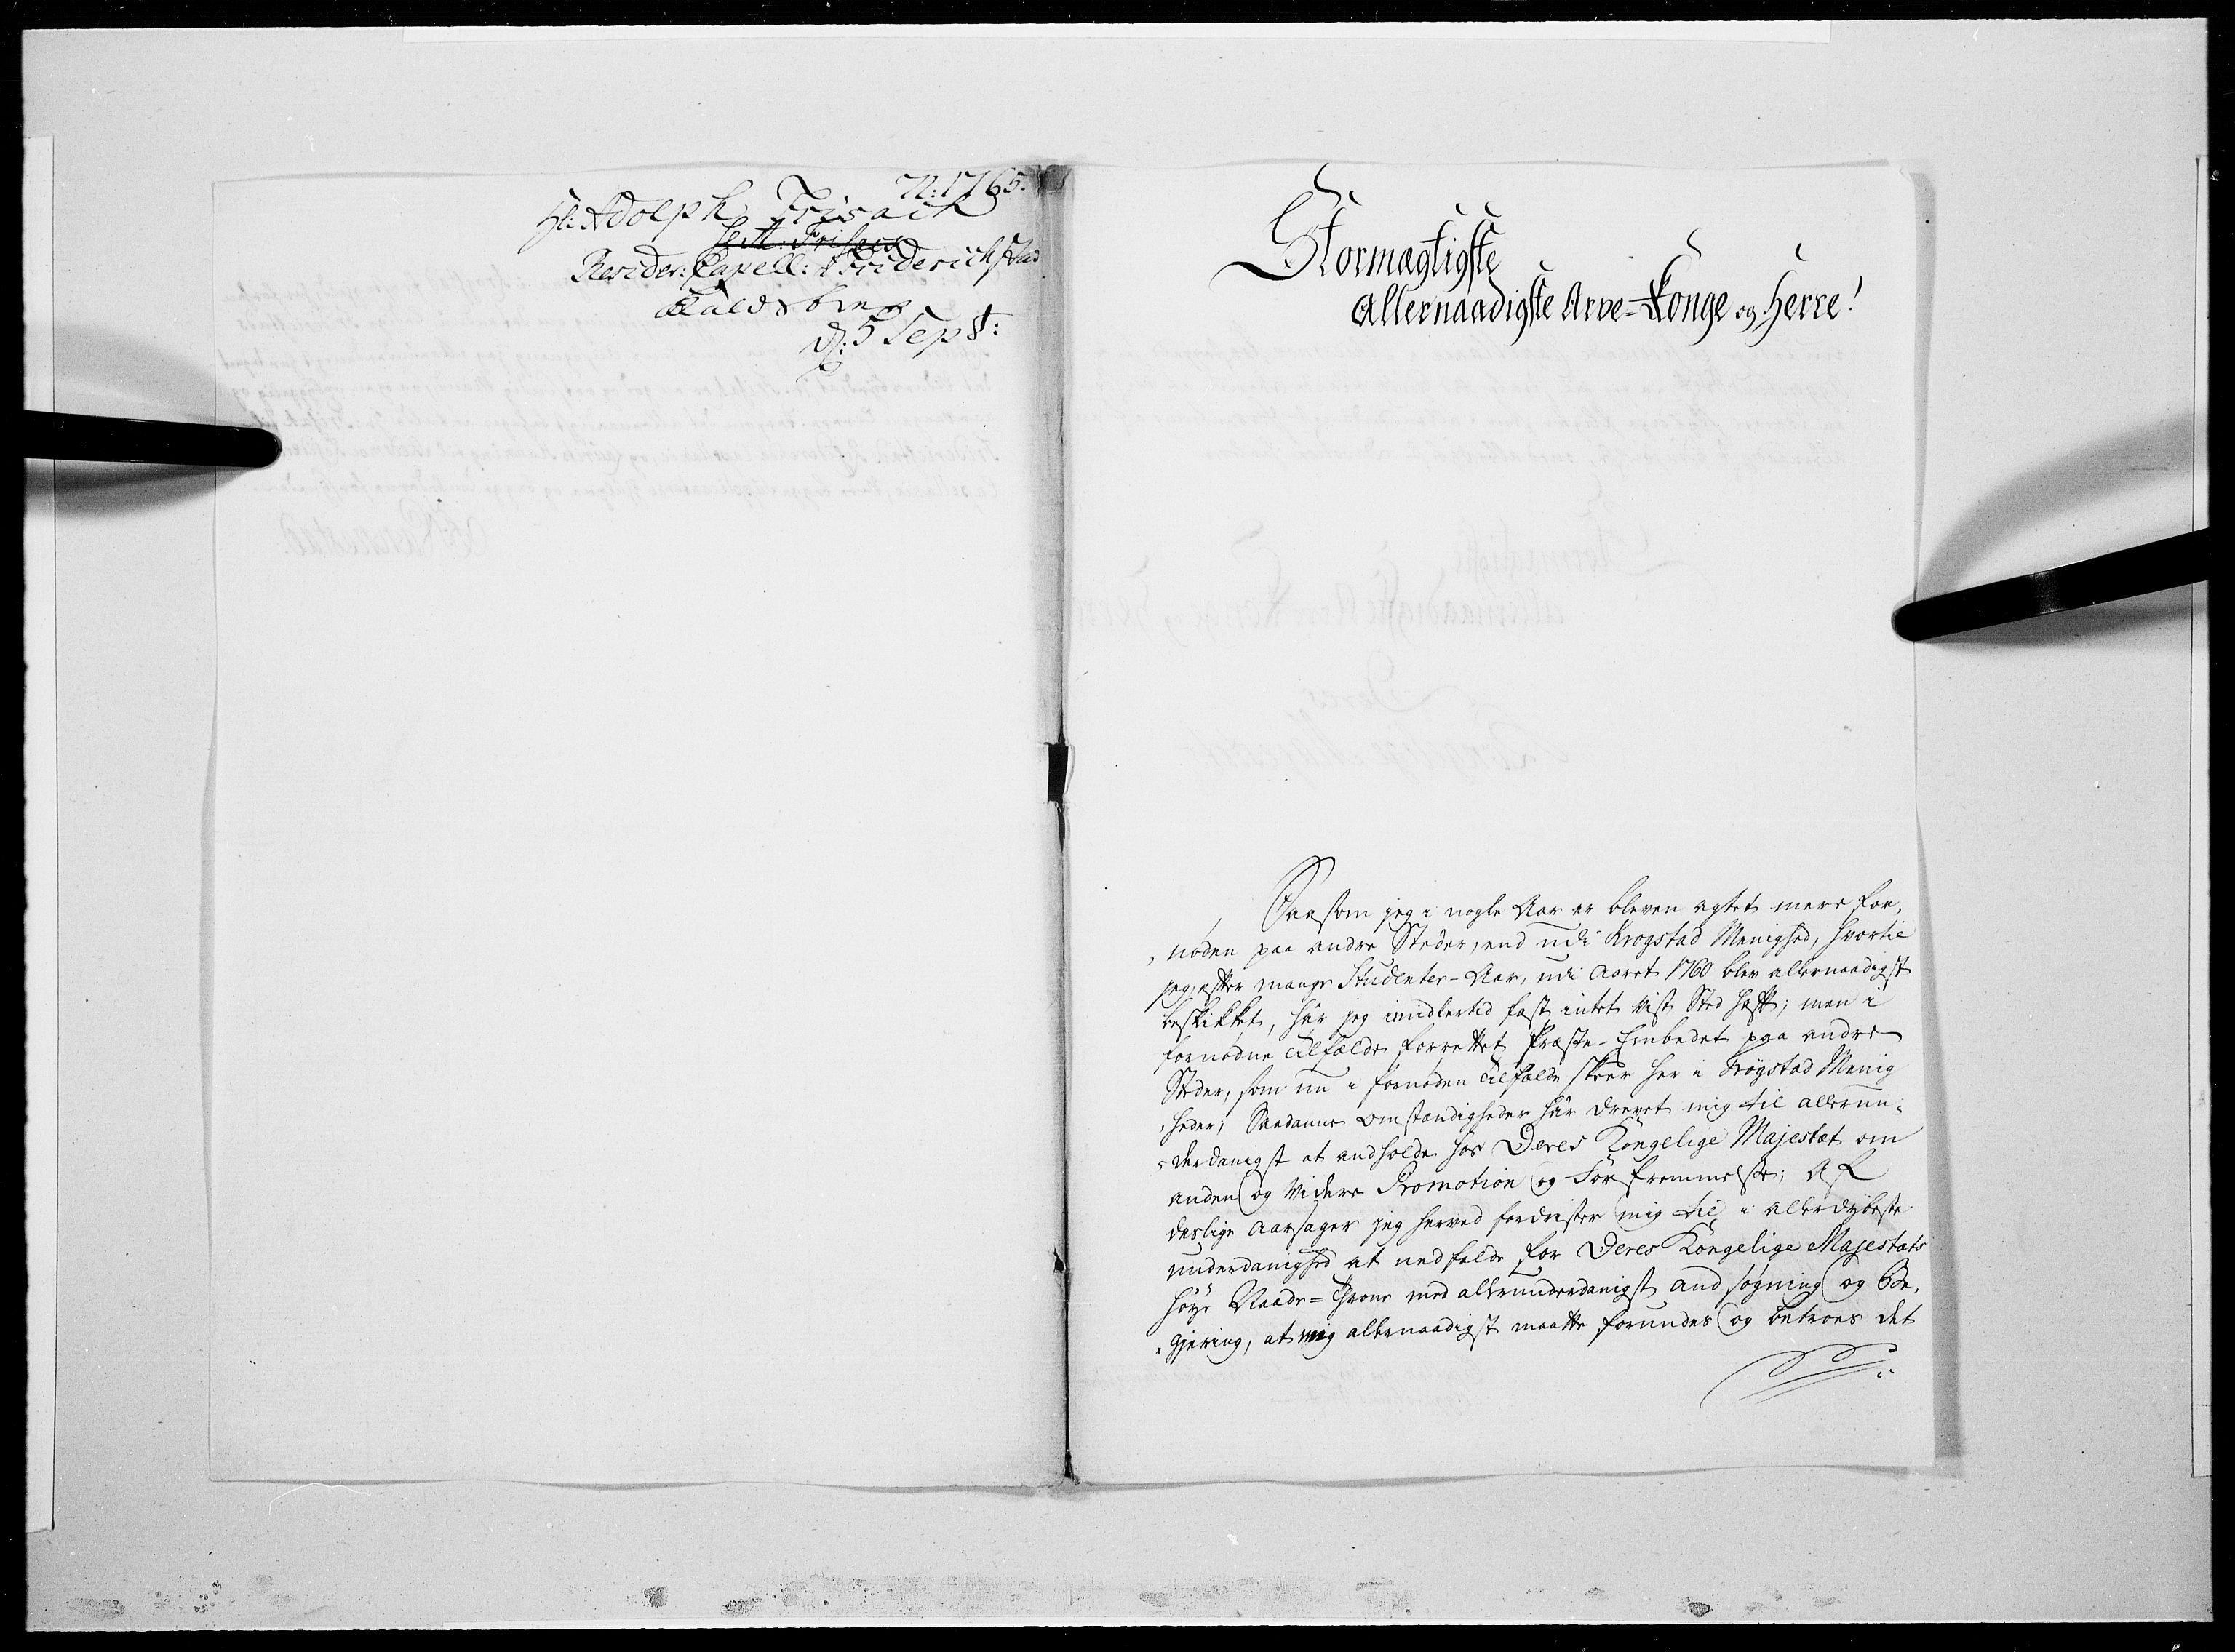 N: 1765.
Hl: Adolph Frisach
Resider: Capell: i Friderichstad
Kaldsbrev
d: 5 Sept:
Stormægtigste
Allernaadigste Arve-Konge og Herre!
Saasom jeg i nogle Aar er bleven agtet mere for-
nøden paa andre Steder, end udi Krogstad Menighed, hvortil
jeg, efter mange Studenter-Aar, udi Aaret 1760 blev allernaadigst
beskikket, har jeg imidlertid fast intet vist Sted haft; men i
fornødne Tilfælde forrettet Præste-Embedet paa andre
Steder, som nu i fornøden Tilfælde skeer her i Krogstad Menig
heder; Saadanne Omstændigheder har drevet mig til allerun-
derdanigst at andholde hos Deres Kongelige Majestæt om
anden og videre Promotion og Forfremmelse; Af
deslige Aarsager jeg herved fordrister mig til i allerdybeste
underdanighed at nedfalde for Deres Kongelige Majestæts
høye Naade-Throne med allerunderdanigst Andsøgning og Be-
gjering, at mig allernaadigst maatte forundes og betroes det